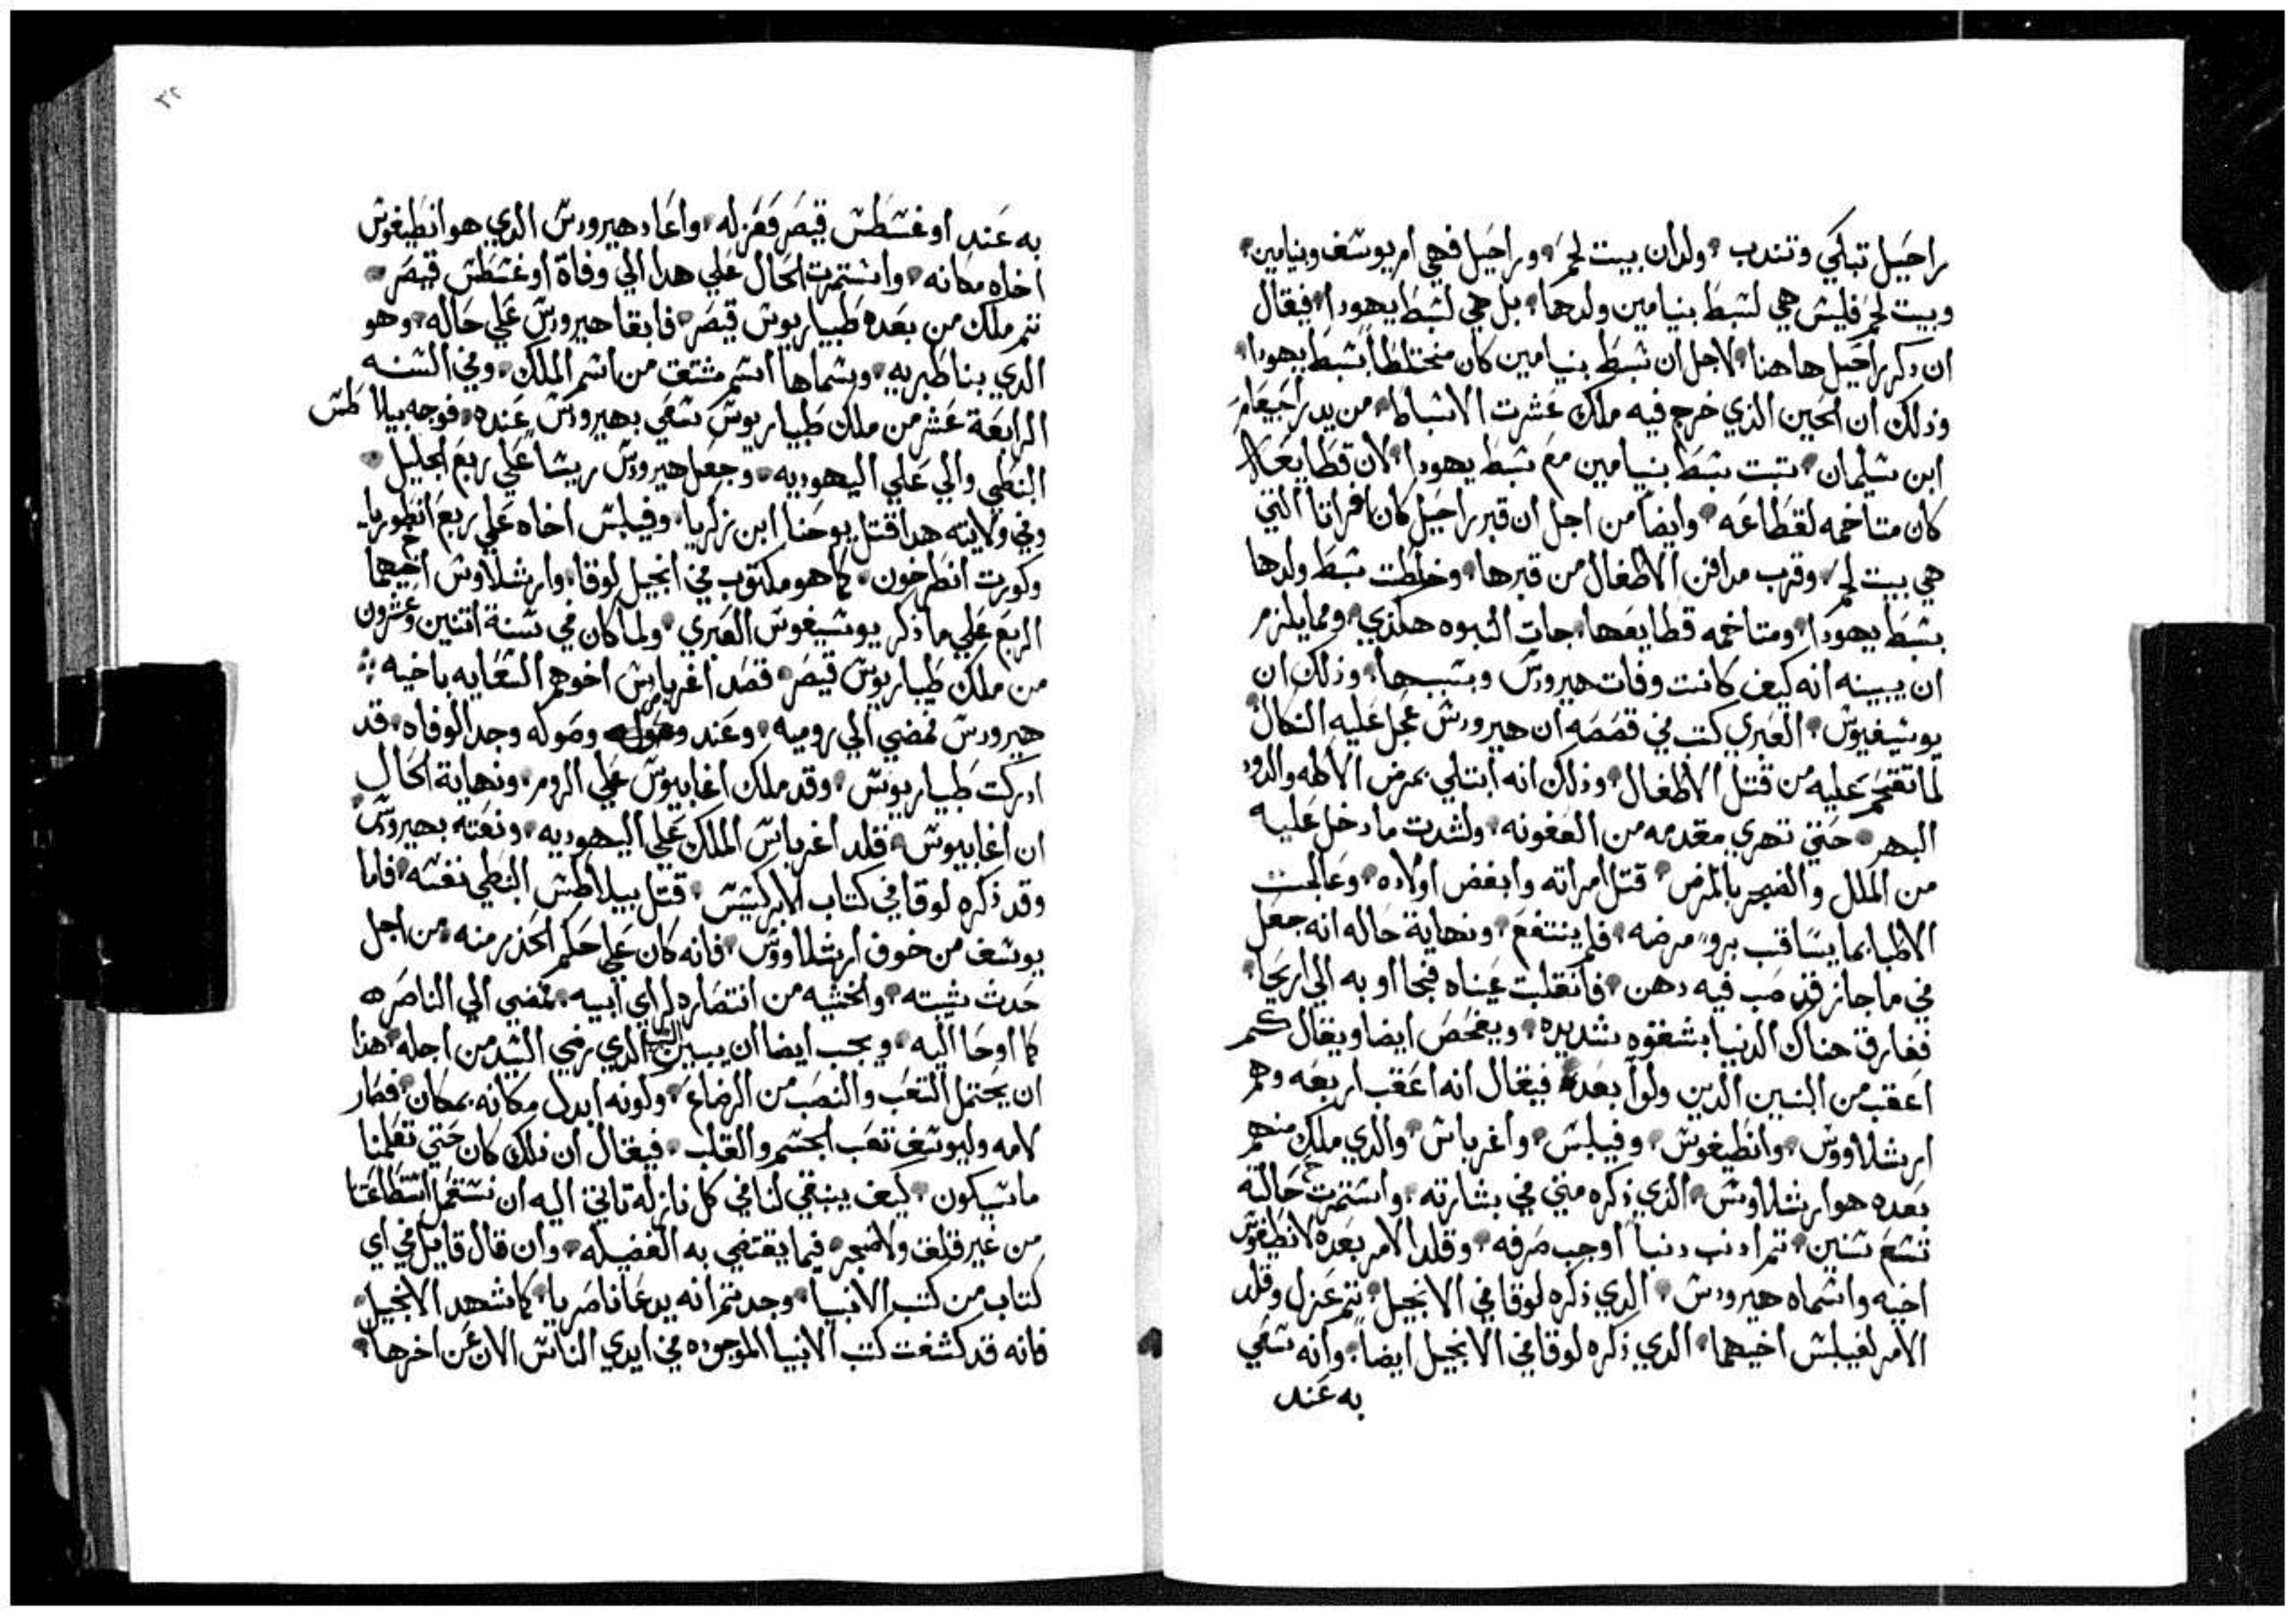 راحيل تبكي وتندب ولدان بيت لحم وراحيل فهي ام يوسف وبنيامين
وبيت لحم فليس هي لسبط بنيامين ولدها بل هي لسبط يهودا فيقال
ان ذكر راحيل هاهنا لاجل ان سبط بنيامين كان مختلطا بسبط يهودا
وذلك ان الحين الذي خرج فيه ملك عشرت الاسباط من يد راجيعام
ابن سليمان تبت سبط بنيامين مع سبط يهودا لان قطايعه
كان متاخمه لقطاعه وايضا من اجل ان قبر راحيل كان افراتا التي
هي بيت لحم وقرب مدافن الاطفال من قبرها وخلطت سبط ولدها
بسبط يهودا ومتاخمه قطايعها جات النبوه هكذي ومما يلزم
ان يبينه انه كيف كانت وفات هيرودس وسببها وذلك ان
يوسيفيوس العبري كتب في قصصه ان هيرودس عجل عليه النكال
لما تقحم عليه من قتل الاطفال وذلك انه ابتلي بمرض الاكله والدود
البهر حتي تهري مقدمه من العفونه ولشدت ما دخل عليه
من الملل والضجر بالمرض قتل امراته وابغض اولاده وعالجت
الاطبا بما يساقب برو مرضه فلم ينتفع ونهاية حاله انه جعل
في ما جاز قد صب فيه دهن فانقلبت عيناه فجااو به الي اريحا
ففارق هناك الدنيا بشقوه شديده ويفحص ايضا ويقال كم
اعقب من البنين الدين ولوا بعده فيقال انه اعقب اربعه وهم
ارشلاووس وانطيغوس وفيلبس واغرباس والدي ملك منهم
بعده هو ارشلاوس الذي ذكره متي في بشارته واستمرت حالته
تسع سنين تم ادنب دنبا اوجب صرفه وقلد الامر بعده لانطيغوس
اخيه واسماه هيرودس الدي ذكره لوقا في الانجيل تم عزل وقلد
الامر لفيلبس اخيهما الدي ذكره لوقا في الانجيل ايضا وانه سعي
به عند
٣٢
به عند اوغسطس قيصر فعزله واعاد هيرودس الدي هو انطيغوس
اخاه مكانه واستمرت الحال علي هدا الي وفاة اوغسطس قيصر
تم ملك من بعده طيباريوس قيصر فابقا هيرودس علي حاله وهو
الدي بنا طبريه وسماها اسم مشتق من اسم الملك وفي السنه
الرابعة عشر من ملك طيباريوس سعي بهيرودس عنده فوجه بيلاطس
النبطي والي علي اليهوديه وجعل هيرودس ريسا علي ربع الجليل
وفي ولايته هدا قتل يوحنا ابن زكريا وفيلبس اخاه علي ربع انطوريا
وكورت انطرخون كما هو مكتوب في انجيل لوقا وارشلاوس اخيهما
الربع علي ما ذكر يوسيغوس العبري ولما كان في سنة اتنين وعشرون
من ملك طيباريوس قيصر قصد اغرباس اخوهم السعايه باخيه
هيرودس فمضي الي روميه وعند وصوله وجد الوفاه قد
ادركت طيباريوس وقد ملك اغابيوس علي الروم ونهاية الحال
ان اغابيوس قلد اغرباس الملك علي اليهوديه ونعته بهيرودس
وقد ذكره لوقا في كتاب الابركسيس قتل بيلاطس النبطي نفسه فاما
يوسف من خوف ارشلاووس فانه كان علي حكم الحذر منه من اجل
حدث سبته والخشيه من انتصاره لراي ابيه فمضي الي الناصره
كما اوحا اليه ويجب ايضا ان يبين السبب الذي رضي السيد من اجله هذا
ان يحتمل التعب والنصب من الرضاع ولكونه ابدل مكانه بمكان فصار
لامه وليوسف تعب الجسم والقلب فيقال ان ذلك كان حتي تعلمنا
ما سيكون كيف ينبغي لنا في كل نازله تاتي اليه ان نستعمل استطاعتنا
من غير قلق ولا ضجر فيما يقتضي به الفضيله وان قال قايل في اي
كتاب من كتب الانبيا وجدتم انه يدعا ناصريا كما شهد الانجيل
فانه قد كشفت كتب الانبيا الموجوده في ايدي الناس الان عن اخرها